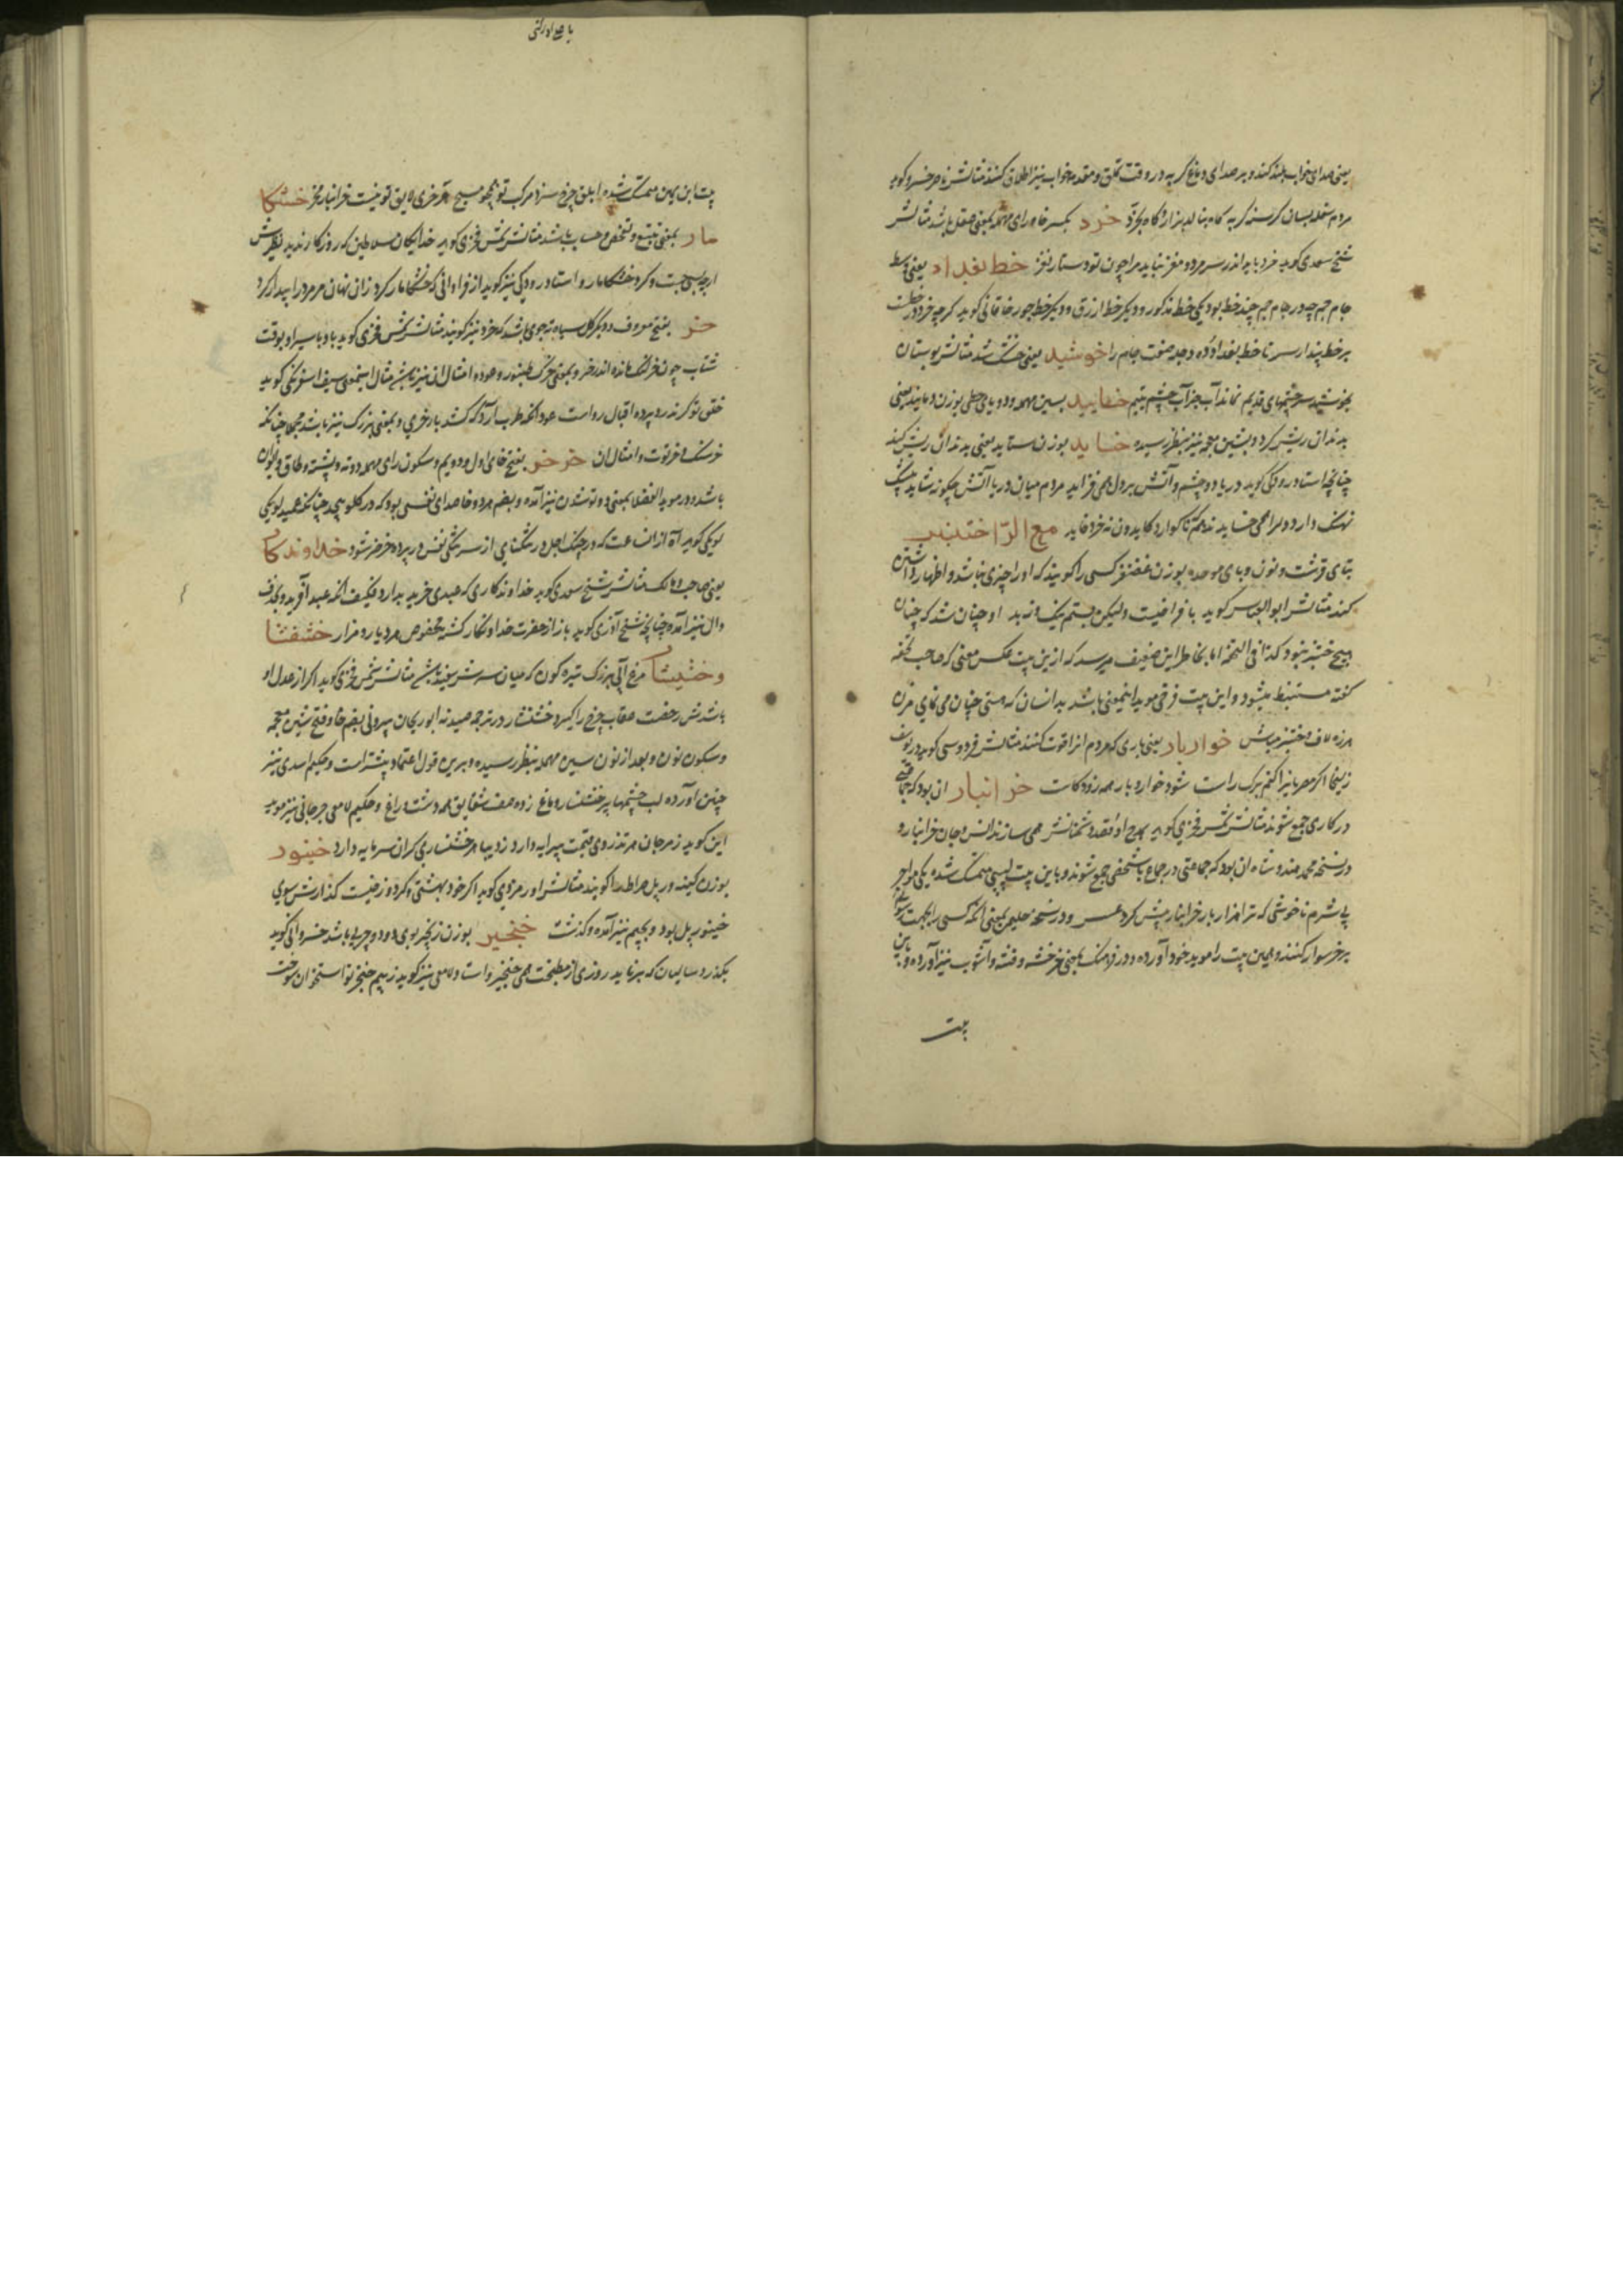 یعنی صدای خواب بلند کند و بر صدای دماغ گربه در وقت تملق و مقدمه خواب نیز اطلاق کنند مثالش ناصر خسرو گوید
مردم سفله بسان گرسنه گربه گاه بنالد بزار و گاه بخرد خرد بکسر خا و رای مهمله بمعنی عقل باشد مثالش
شیخ سعدی گوید خرد باید اندر سر مرد و مغز نباید مرا چون تو دستار نغز خط بغداد یعنی وسط
جام جم چه در جام جم چند خط بود یکی خط مذکور و دیگر خط ازرق و دیگر خط جور خاقانی گوید
بر خط پندار سر تا خط بغداد ده دجله صفت جام را خوشید یعنی خشک شد مثالش بوستان
بخوشید سرچشمهای قدیم نماند آب جز آب چشم یتیم خسایید بسین مهمله و دو یای حطی بوزن
بدندان ریش کرد و بشین معجمه نیز بنظر رسیده خساید بوزن ستاید یعنی بدندان ریش کند
چنانچه استاد رودکی گوید دریا دو چشم و آتش بر دل همی فزاید مردم میان دریا و آتش چگونه شاید
نهنگ دارد دل را همی خساید ندهم که ناگوارد کایدون نه خرد خاید مع الرّا ختنبر
بتای قرشت و نون و بای موحده بوزن غضنفر کسی را گویند که او را چیزی نباشد و اظهار
کند مثالش ابوالعباس گوید با فراخیست ولیکن بستم نیک زید او چنان شد که چنان
هیچ ختنبر نبود کذا فی التحفه اما بخاطر این ضعیف میرسد که ازین بیت عکس معنی که صاحب تحفه
گفته مستنبط میشود و این بیت فرخی موید اینمعنی باشد بدانسان که هستی چنان می نمای مزن
هرزه لاف و ختنبر مباش خواربار یعنی باری که مردم انرا قوت کنند مثالش فردوسی گوید در یوسف
زلیخا اگر مصر یانیز اکنم برک راست شود خواربار همه زود کاست خر انبار ان بود که جماعتی
در کاری جمع شوند مثالش شمس فخری گوید
در نسخه محمد هندوشاه ان بود که جماعتی در جماع باشخصی جمع شوند و باین بیت لبیبی متمسک شده یکی مواجر
بی شرم ناخوشی که ترا هزار بار خرانبار بیش کرد عسس و در نسخه حلیمی بمعنی انکه کسی را بجهت
بر خر سوار کنند و همین بیت را موید خود آورده و در فرهنگ بمعنی خرخشه و فتنه و آشوب نیز آورده و باین
بیت
بیت ابن یمین متمسک شده ابلق چرخ سزد مرکب تو همچو مسیح هر خری لایق تو نیست خرانبار مخر خشکا
مار بمعنی تتبع و تفحص و حساب باشد مثالش شمس فخری گوید خدایکان سلاطین که روزکار ندید نظیرش
ارچه بسی جست و کرد خشکامار و استاد رودکی نیز گوید از فراوانی که خشکامار کرد زان نهان مر مرد را بیدار کرد
خر بفتح معروف و دیگر کل سیاه ته جوی باشد که خرد نیز گویند مثالش شمس فخری گوید
شتاب چون خر لنک مانده اندر خر و بمعنی خرک طنبور و عود و امثال ان نیز باشد مثال اینمعنی سیف اسفرنکی گوید
خلق تو کر ندرد پرده اقبال رواست عود انکه طرب آرد که کشد بار خری و بمعنی بزرک نیز باشد چنانکه
خرسنک و خرتوت و امثال ان خرخر بفتح خای اول و دویم و سکون رای مهمله دوته و پشته و طاق و ایوان
باشد و در موید الفضلا بمعنی دوتو شدن نیز آمده و بضم هر دو خا صدای نفسی بود که در کلو پیچد چنانکه عمید لویکی
لویکی گوید آه از ان ساعت که در چنک اجل در تنکنای از سر تنکی نفس در پرده خرخر شود خداوندکار
یعنی صاحب و مالک مثالش شیخ سعدی گوید خداوندکاری که عبدی خرید بدارد فکیف انکه عبد آفرید و بحذف
دال نیز آمده چنانچه شیخ آذری گوید باز از حضرت خداونکار کشته مخصوص مرد یار و مزار خشنشار
و خشیشار مرغ آبی بزرک تیره کون که میان سرش سفید باشد مثالش شمس فخری گوید اکر از عدل او
باشدش رخصت عقاب چرخ را کیرد خشنشار و در ترجمه صیدنه ابوریحان بیرونی بضم خا و فتح شین معجمه
و سکون نون و بعد از نون سین مهمله بنظر رسیده و برین قول اعتماد بیشتر است و حکیم اسدی نیز
چنین آورده لب چشمها پر خشنسار و ماغ زده صف شقایق همه دشت و راغ و حکیم لامعی جرجانی نیز موید
این گوید ز مرجان هر تذروی قیمت پیرایه دارد ز دیبا هر خشنساری کران سرمایه دارد خنیور
بوزن کینه ور پل صراط را گویند مثالش اورمزدی گوید اکر خود بهشتی وکر دوزخیست کذارش سوی
خنیور پل بود و بجیم نیز آمده و کذشت خنجیر بوزن زنجیر بوی دود و چربی باشد خسروانی گوید
بکذرد سالیان که برناید روزی از مطبخت همی خنجیر و استاد لامعی نیز گوید ز بیم خنجر تو استخوان سوخت